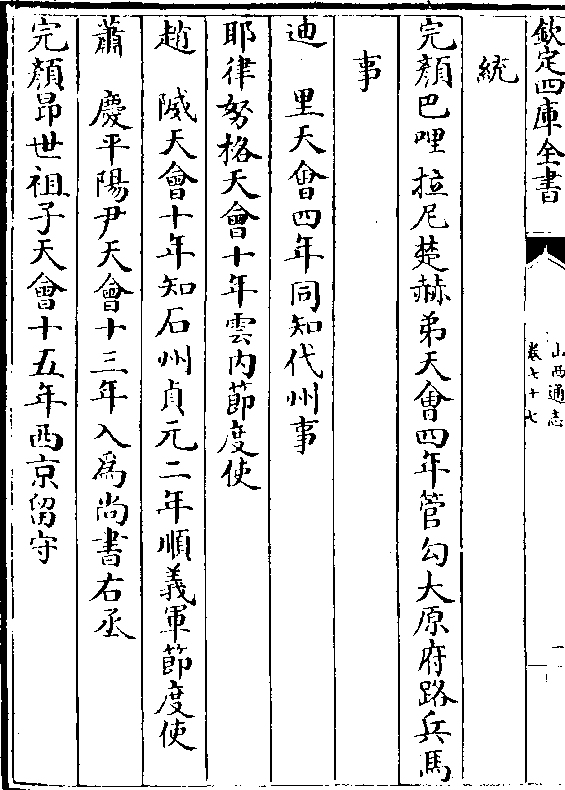 欽定四庫全書
山西通志
卷七十七
一
統
完顏巴哩拉尼楚赫弟天會四年管勾大原府路兵馬
事
迪里天會四年同知代州事
耶律努格天會十年雲内節度使
趙　陚天會十年知石州貞元二年順義軍節度使
蕭　慶平陽尹天會十三年入為尚書右丞
完顏昂世祖子天會十五年西京留守